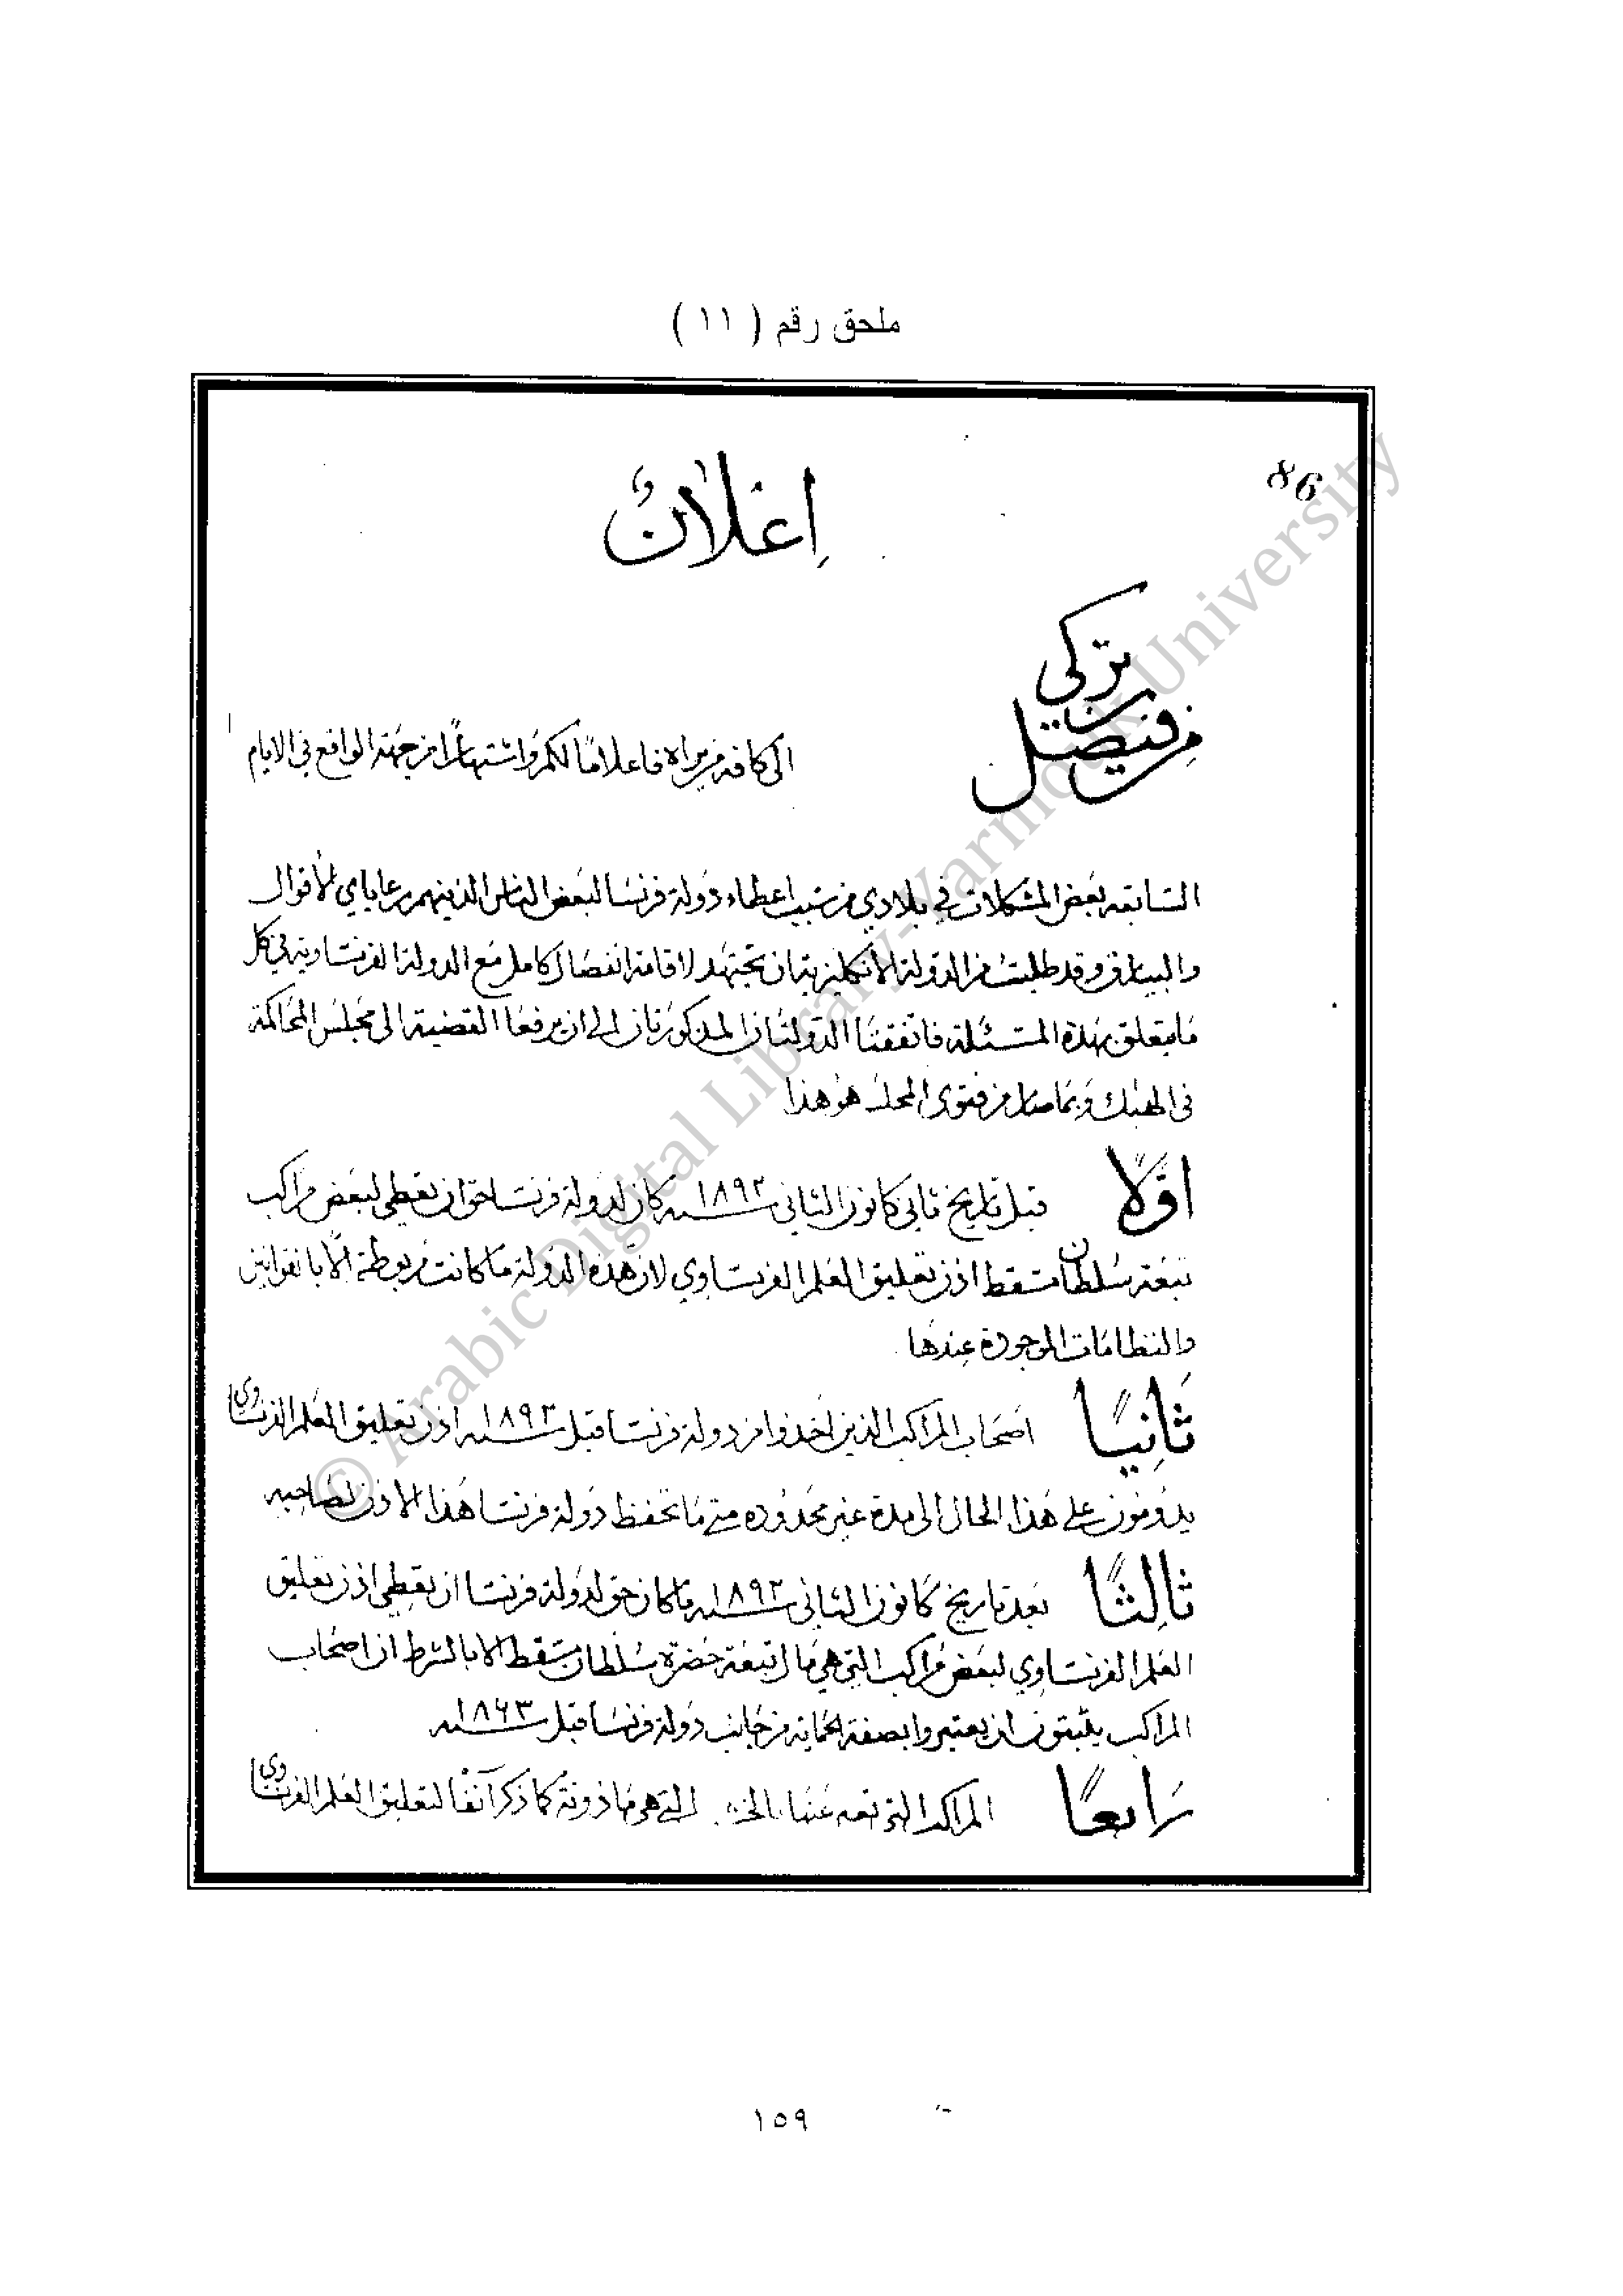 ملحق رقم ( ١١ )
86
إعلان
من فيصل بن تركي
الى كافه من يراه فاعلامًا لكم واشتهارًا من جهة الواقع في الايام
السابقه بعض المشكلات في بلادي من سبب اعطاء دولة فرنسا لبعض الناس الذينهم من رعاياي الأقوال
والبيارق وقد طلبت من الدولة الأنكليزية ان تجتهد لاقامة انفصال كامل مع الدولة الفرنساوية في كل
ما يتعلق بهذه المسئلة فاتفقتا الدولتان المذكورتان الى ان يرفعا القضية الى مجلس المحاكمة
في الهيك وبما صار من فتوى المجلس هو هذا
اوّلاً قبل تاريخ ثاني كانون الثاني سنه ١٨٩٢ كان لدولة فرنسا حق ان يعطي لبعض مراكب
تبعة سلطان مسقط اذن تعليق العلم الفرنساوي لان هذه الدولة ما كانت مربوطة الّا بالقوانين
والنظامات الموجودة عندها
ثانياً اصحاب المراكب الذين اخذوا من دولة فرنسا قبل سنه ١٨٩٣ اذن تعليق العلم الفرنساوي
يدومون على هذا الحال الى مدة غير محدوده متى ما تحفظ دولة فرنسا هذا الاذن لصاحبه
ثالثاً بعد تاريخ كانون الثاني سنه ١٨٩٢ ما كان حق لدولة فرنسا ان يعطي اذن تعليق
العلم الفرنساوي لبعض مراكب التي هي مال تبعة حضرة سلطان مسقط الا بالشرط ان اصحاب
المراكب يثبتون ان يعتبروا بصفة الحماية من جانب دولة فرنسا قبل سنه ١٨٦٣
رابعاً المراكب التي هي ماذونة كما ذكر آنفًا لتعليق العلم الفرنساوي
١٥٩
© Arabic Digital Library-Yarmouk University